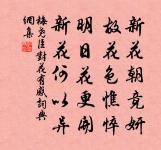 新花朝竞妍
故花色憔悴
明日花更開
新花何以异
梅尧臣對花有感詞典
網集